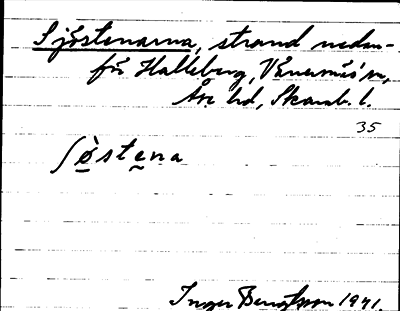 Sjöstenarna, strand nedan-
för Halleberg, Vänersnäs sn,
Åse hd, Skarab. l.
35
ʃø̀stena
Inger Bengtsson 1971.